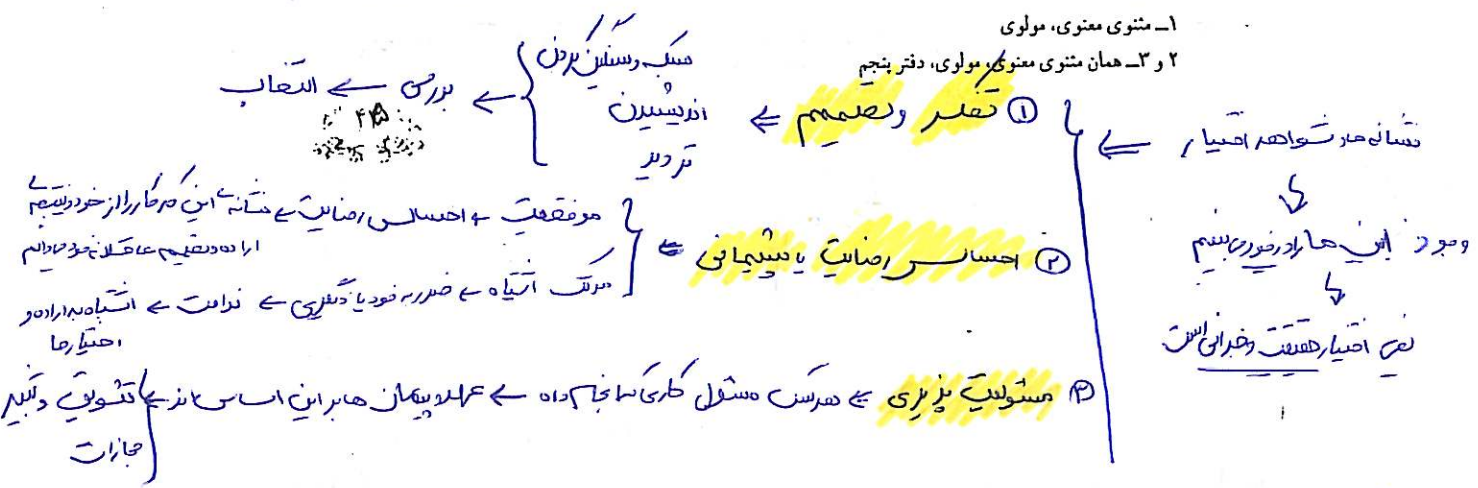 ۱ــ مثنوی معنوی، مولوی
۲ و ۳ــ همان مثنوی معنوی، مولوی، دفتر پنجم
نشانه ها و شواهد اختیار ⇐
وجود این ها را در خود می بینیم
یعنی اختیار حقیقت وجدانی است
① تفکر و تصمیم ⇐
سبک و سنگین کردن
اندیشیدن
تردید
← بررسی ← انتخاب
② احساس رضایت یا پشیمانی ⇐
موفقیت ← احساس رضایت ← نشانه این که کار را از خود و نتیجه ی
اراده و تصمیم عاقلانه خود می دانیم
مرتکب اشتباه ← ضرر به خود یا دیگری ← ندامت ← اشتباه به اراده و
اختیار ما
③ مسئولیت پذیری ⇐ هرکس مسئول کاری که انجام داده ← عهد و پیمان ها بر این اساس اند ← تشویق و تنبیه
مجازات